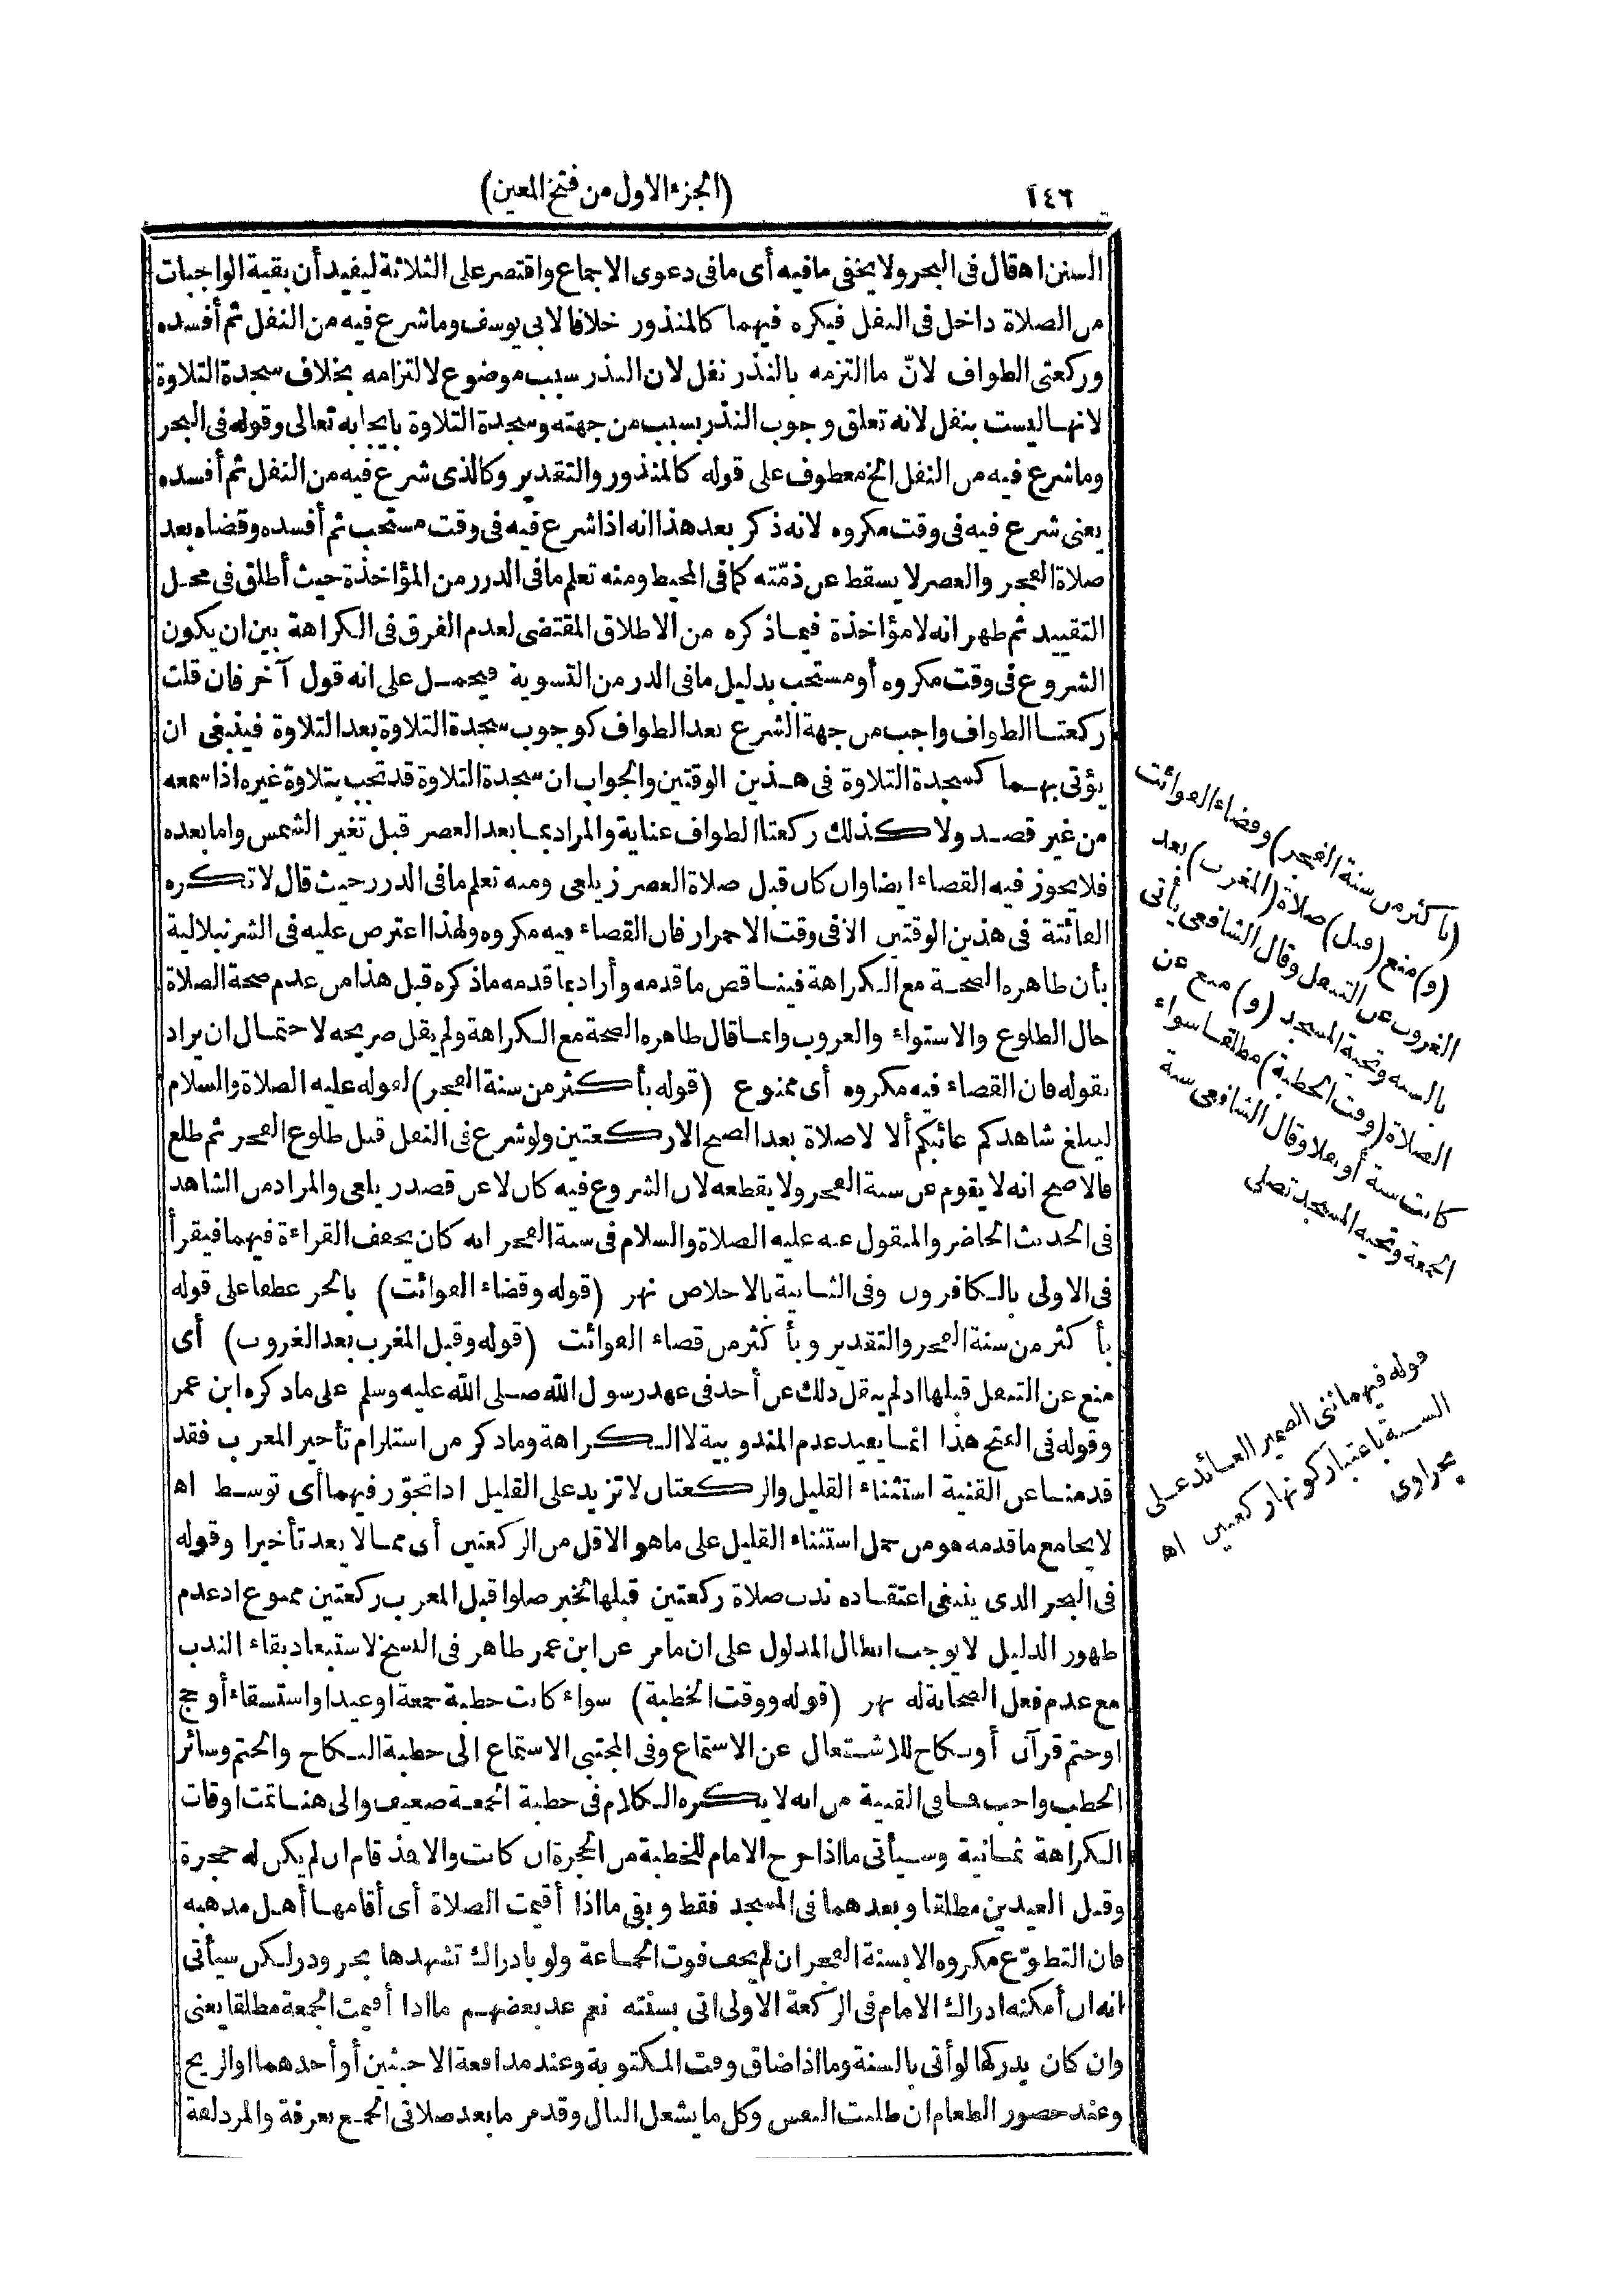 ١٤٦
(الجزء الاول من فتح المعين)
السنن اه قال فى البحر ولا يخفى ما فيه أى ما فى دعوى الاجماع واقتصر على الثلاثة ليفيد أن بقية الواجبات
من الصلاة داخل فى النفل فيكره فيهما كالمنذور خلافا لابى يوسف وما شرع فيه من النفل ثم أفسده
وركعتى الطواف لانّ ما التزمه بالنذر نفل لان النذر سبب موضوع لالتزامه بخلاف سجدة التلاوة
لانها ليست بنفل لانه تعلق وجوب النذر بسبب من جهته وسجدة التلاوة بايجابه تعالى وقوله فى البحر
وما شرع فيه من النفل الخ معطوف على قوله كالمنذور والتقدير وكالذى شرع فيه من النفل ثم أفسده
يعنى شرع فيه فى وقت مكروه لانه ذكر بعد هذا انه اذا شرع فيه فى وقت مستحب ثم أفسده وقضاه بعد
صلاة الفجر والعصر لا يسقط عن ذمّته كما فى المحيط ومنه تعلم ما فى الدرر من المؤاخذة حيث أطلق فى محل
التقييد ثم ظهر انه لا مؤاخذة فيما ذكره من الاطلاق المقتضى لعدم الفرق فى الكراهة بين ان يكون
الشروع فى وقت مكروه أو مستحب بدليل ما فى الدر من التسوية فيحمل على انه قول آخر فان قلت
ركعتا الطواف واجب من جهة الشرع بعد الطواف كوجوب سجدة التلاوة بعد التلاوة فينبغى ان
يؤتى بهما كسجدة التلاوة فى هذين الوقتين والجواب ان سجدة التلاوة قد تجب بتلاوة غيره اذا سمعه
من غير قصد ولا كذلك ركعتا الطواف عناية والمراد بما بعد العصر قبل تغير الشمس واما بعده
فلا يجوز فيه القضاء ايضا وان كان قبل صلاة العصر زيلعى ومنه تعلم ما فى الدرر حيث قال لا تكره
الفائتة فى هذين الوقتين الا فى وقت الاحمرار فان القضاء فيه مكروه ولهذا اعترض عليه فى الشرنبلالية
بأن ظاهره الصحة مع الكراهة فيناقض ما قدمه وأراد بما قدمه ما ذكره قبل هذا من عدم صحة الصلاة
حال الطلوع والاستواء والغروب وانما قال ظاهره الصحة مع الكراهة ولم يقل صريحه لاحتمال ان يراد
بقوله فان القضاء فيه مكروه أى ممنوع (قوله بأكثر من سنة الفجر) لقوله عليه الصلاة والسلام
ليبلغ شاهدكم غائبكم ألا لا صلاة بعد الصبح الا ركعتين ولو شرع فى النفل قبل طلوع الفجر ثم طلع
فالاصح انه لا يقوم عن سنة الفجر ولا يقطعه لان الشروع فيه كان لا عن قصد زيلعى والمراد من الشاهد
فى الحديث الحاضر والمنقول عنه عليه الصلاة والسلام فى سنة الفجر انه كان يخفف القراءة فيهما فيقرأ
فى الاولى بالكافرون وفى الثانية بالاخلاص نهر (قوله وقضاء الفوائت) بالجر عطفا على قوله
بأكثر من سنة الفجر والتقدير وبأكثر من قضاء الفوائت (قوله وقبل المغرب بعد الغروب) أى
منع عن التنفل قبلها اذ لم ينقل ذلك عن أحد فى عهد رسول الله صلى الله عليه وسلم على ما ذكره ابن عمر
وقوله فى الفتح هذا انما يفيد عدم المندوبية لا الكراهة وما ذكر من استلزام تأخير المغرب فقد
قدمنا عن القنية استثناء القليل والركعتان لا تزيد على القليل اذا تجوّز فيهما أى توسط اه
لا يجامع ما قدمه هو من حمل استثناء القليل على ما هو الاقل من الركعتين أى مما لا يعد تأخيرا وقوله
فى البحر الذى ينبغى اعتقاده ندب صلاة ركعتين قبلها لخبر صلوا قبل المغرب ركعتين ممنوع اذ عدم
ظهور الدليل لا يوجب ابطال المدلول على ان ما مر عن ابن عمر ظاهر فى النسخ لاستبعاد بقاء الندب
مع عدم فعل الصحابة له نهر (قوله ووقت الخطبة) سواء كانت خطبة جمعة او عيد او استسقاء أو حج
او ختم قرآن أو نكاح للاشتغال عن الاستماع وفى المجتبى الاستماع الى خطبة النكاح والختم وسائر
الخطب واجب فما فى القنية من انه لا يكره الكلام فى خطبة الجمعة ضعيف والى هنا تمت اوقات
الكراهة ثمانية وسيأتى ما اذا خرج الامام للخطبة من الحجرة ان كانت والا فذ قام ان لم يكن له حجرة
وقبل العيدين مطلقا وبعدهما فى المسجد فقط وبقى ما اذا أقيمت الصلاة أى أقامها أهل مذهبه
فان التطوّع مكروه الا بسنة الفجر ان لم يخف فوت الجماعة ولو بادراك تشهدها بحر ودر لكن سيأتى
انه ان أمكنه ادراك الامام فى الركعة الاولى اتى بسنته نعم عد بعضهم ما اذا أقيمت الجمعة مطلقا يعنى
وان كان يدركها لو أتى بالسنة وما اذا ضاق وقت المكتوبة وعند مدافعة الاخبثين أو أحدهما او الريح
وعند حضور الطعام ان طلبت النفس وكل ما يشغل البال وقد مر ما بعد صلاتى الجمع بعرفة والمزدلفة
(بأكثر من سنة الفجر) وقضاء الفوائت
(و) منع (قبل) صلاة (المغرب) بعد
الغروب عن التنفل وقال الشافعى يأتى
بالسنة وتحية المسجد (و) منع عن
الصلاة (وقت الخطبة) مطلقا سواء
كانت سنة أو نفلا وقال الشافعى سنة
الجمعة وتحية المسجد تصلى
قوله فيهما ثنى الضمير العائد على
السنة باعتبار كونها ركعتين اه
بحراوى